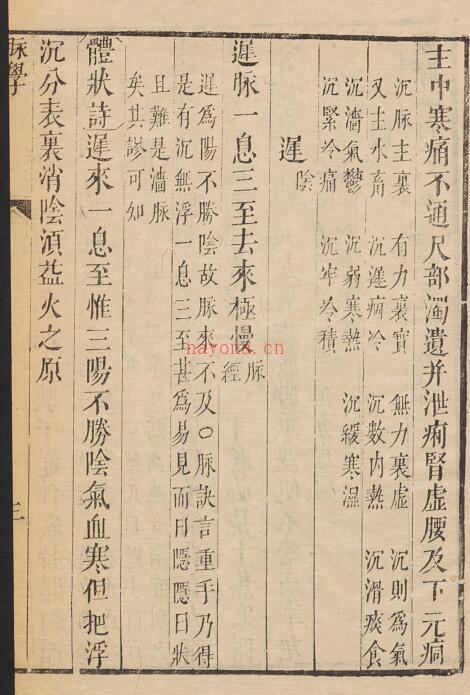 主中寒痛不通尺部濁遺并泄痢腎虛腰及下元痌
沉脉主裏　有力裏實　無力裏虛　沉則爲氣
又主水畜　沉遲痼冷　沉數内熱　沉滑痰食
沉濇氣鬱　沉弱寒熱　沉緩寒濕
沉緊冷痛　沉牢冷積
遲陰
遲脉一息三至去來極慢脉經
遲爲陽不勝陰故脉來不及○脉訣言重手乃得
是有沉無浮一息三至甚爲易見而曰隱隱曰狀
且難是濇脉
矣其謬可知
體狀詩遲來一息至惟三陽不勝陰氣血寒但把浮
沉分表裏消陰須益火之原
脉學
三
nayona.cn